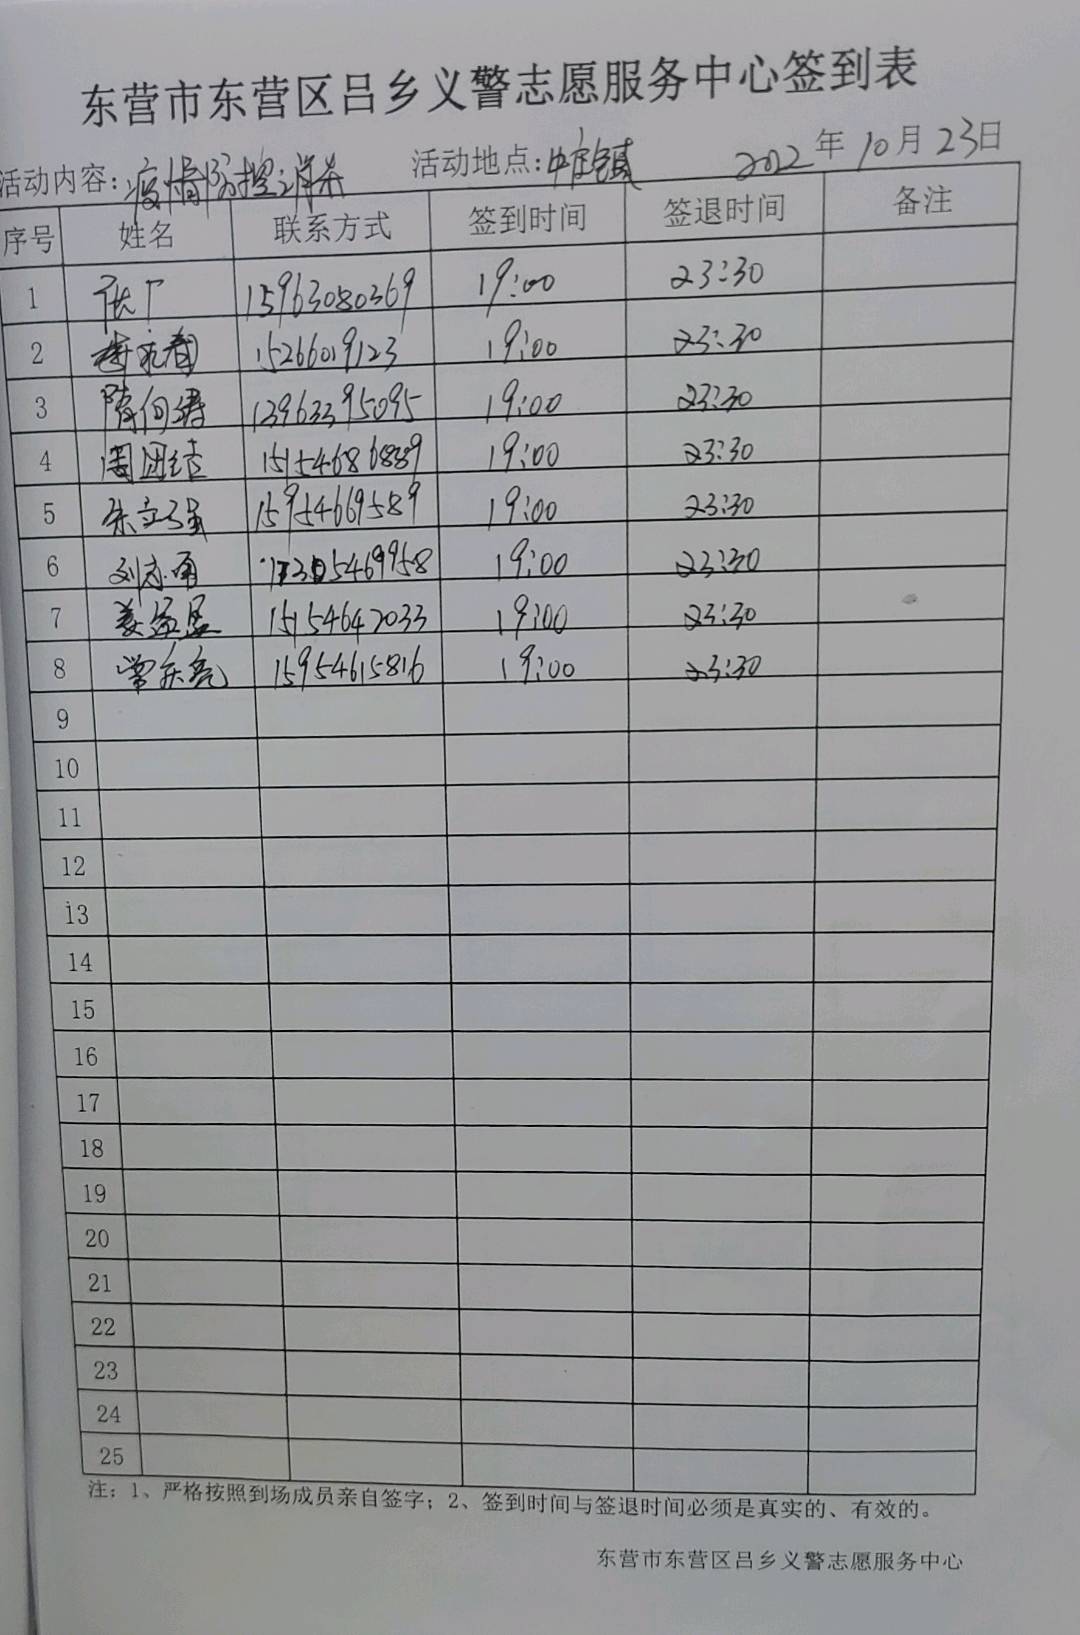 东营市东营区吕乡义警志愿服务中心签到表
活动内容：疫情防控消杀 活动地点： 2022年10月23日
序号 姓名 联系方式 签到时间 签退时间 备注
1 15963080369 19:00 23:30
2 15266019123 19:00 23:30
3 13963395095 19:00 23:30
4 周团结 19:00 23:30
5 朱立强 15954669589 19:00 23:30
6 刘志勇 19:00 23:30
7 姜益民 15154642033 19:00 23:30
8 常庆亮 15954615816 19:00 23:30
9
10
11
12
13
14
15
16
17
18
19
20
21
22
23
24
25
注：1、严格按照到场成员亲自签字；2、签到时间与签退时间必须是真实的、有效的。
东营市东营区吕乡义警志愿服务中心